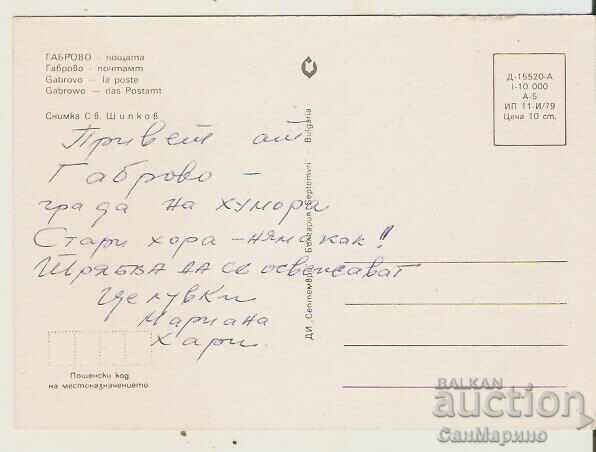 ГАБРОВО - пощата
Габрово - почтамт
Gabrovo - la poste
Gabrowo - das Postamt
Снимка Св. Шипков
Привет от
Габрово -
града на хумора
Стари хора - няма как!
Трябва да се освежават
Целувки
Мариана
Хари
Пощенски код
на местоназначението
ДИ „Септември" България Septemvri - Bulgaria
Д-15520-А
I-10 000
А-5
ИП 11-И/79
Цена 10 ст.
BALKAN
auction
СанМарино